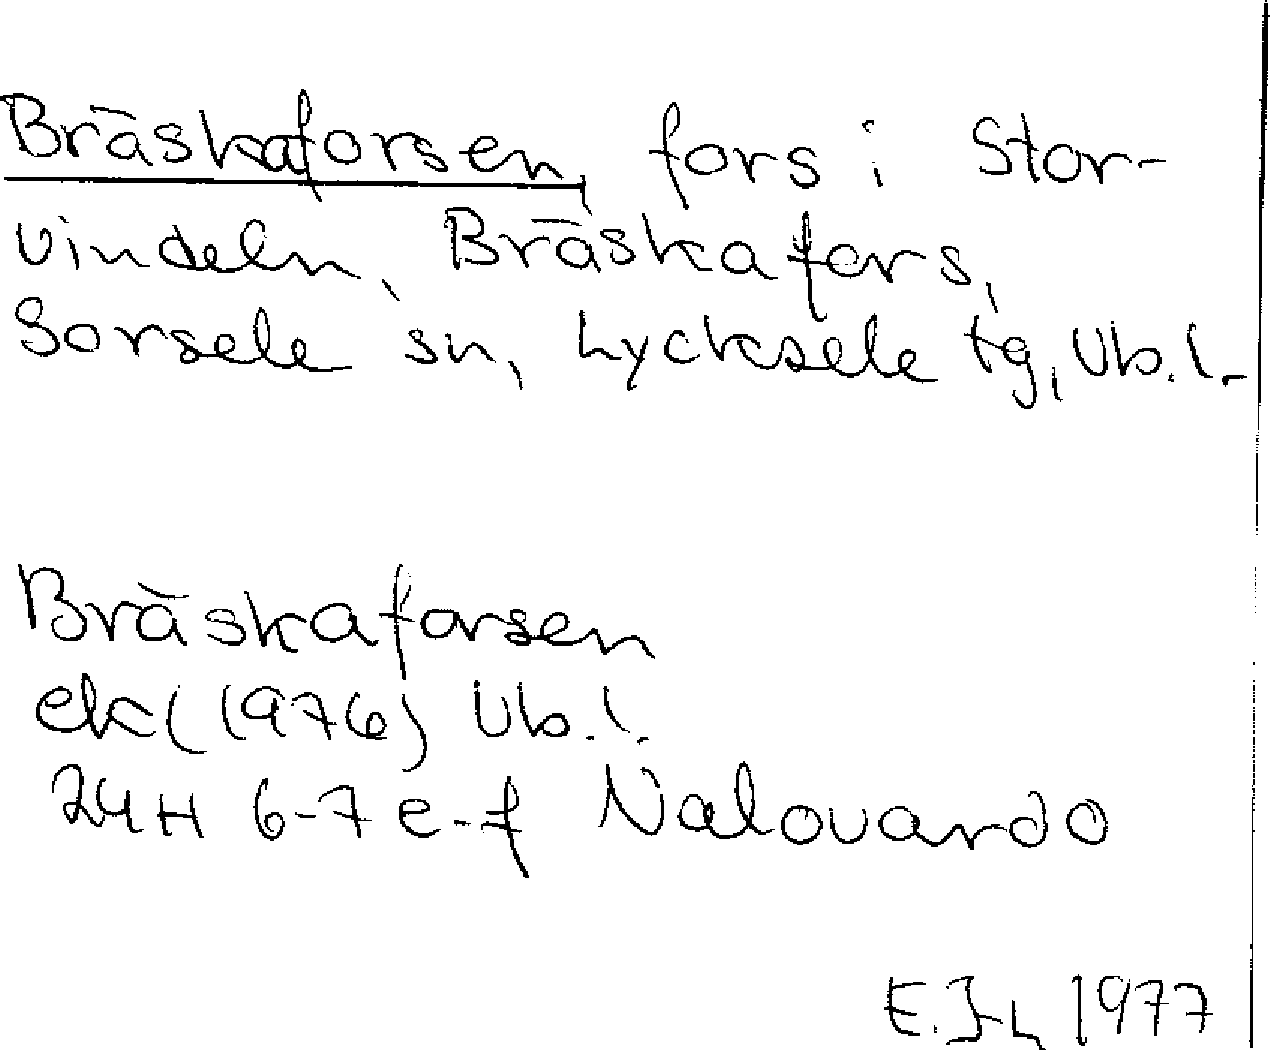 Bräskaforsen, fors i Stor-
vindeln, Bräskafors,
Sorsele sn, Lycksele tg, Vb.l.
Bräskaforsen
ek (1976) Vb.l.
24H 6-7 e-f Nalovardo
E. J-h 1977